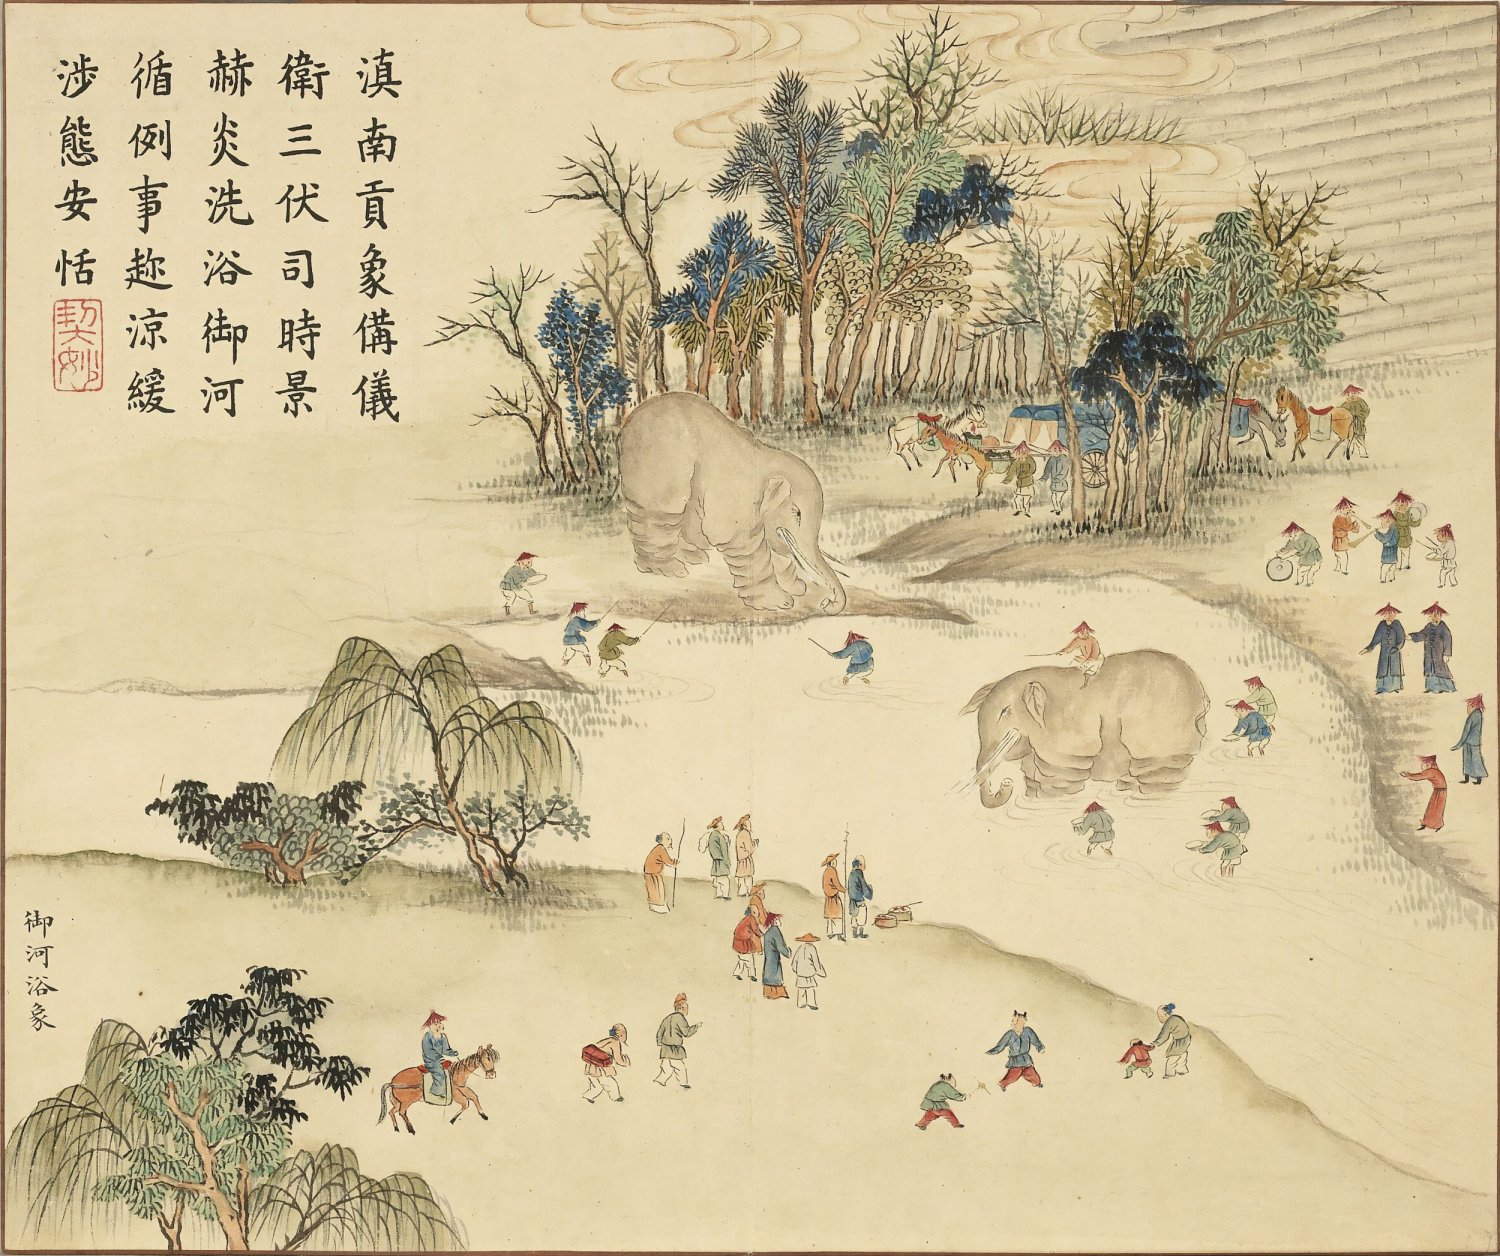 滇南貢象備儀
衛三伏司時景
赫炎洗浴御河
循例事趂涼緩
涉態安恬
契妙
御河浴象